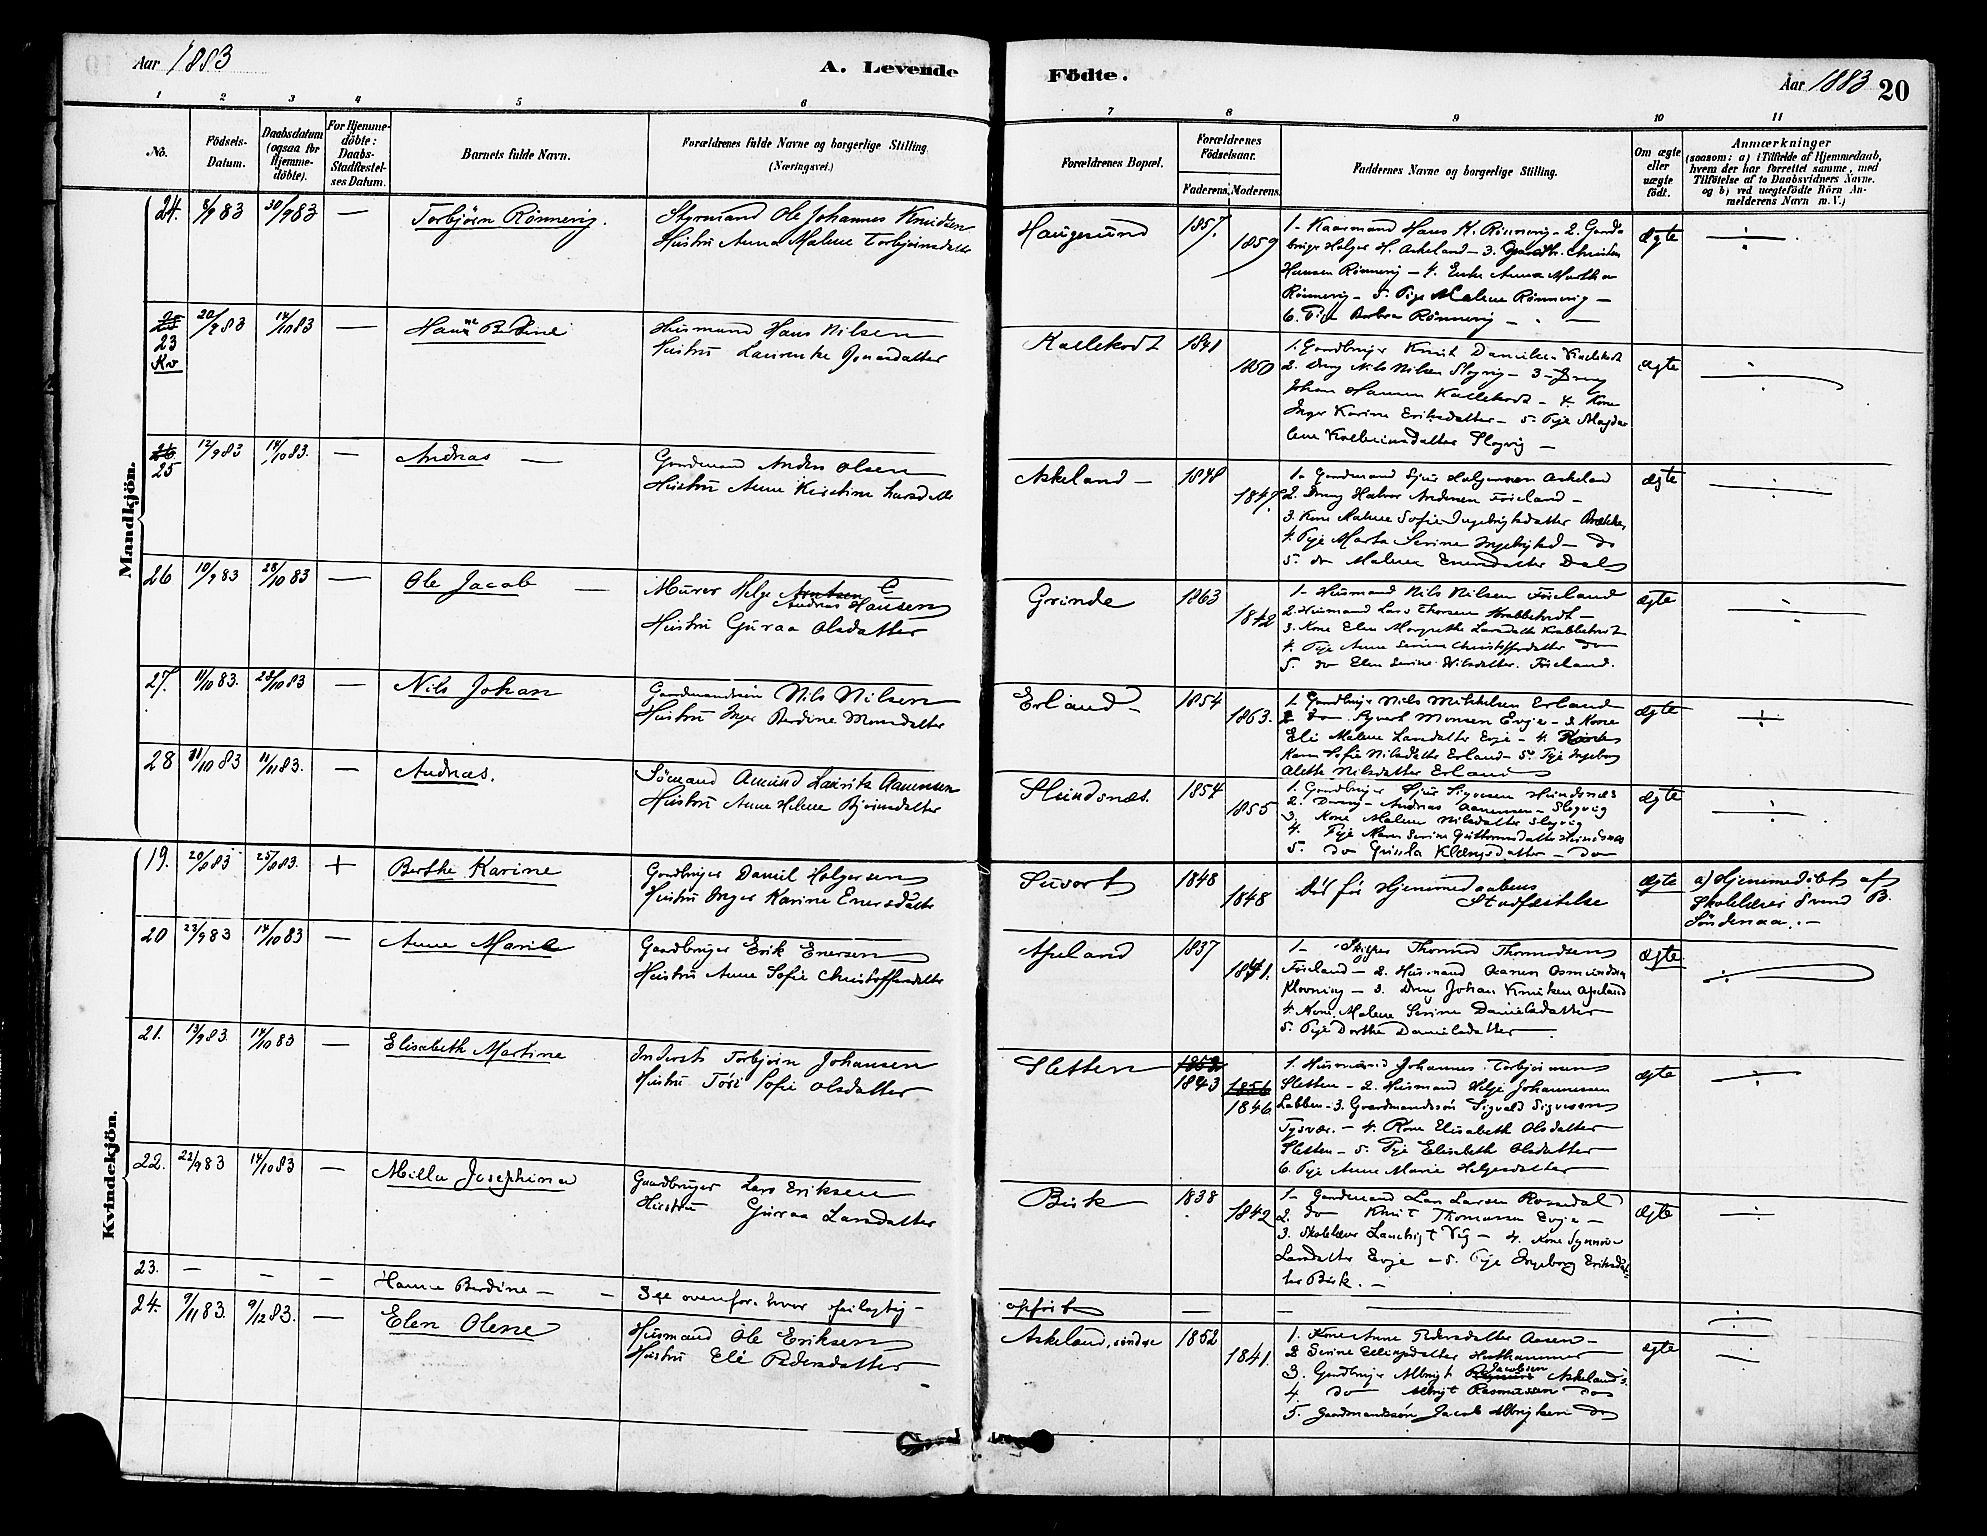 Aar 1883
A. Levende Födte.
Aar 1883 20
1 2 3 4 5 6 7 8 9 10 11
No.
Födsels-Datum.
Daabsdatum (ogsaa for Hjemme-döbte).
For Hjemme-döbte: Daabs-Stadfæstel-ses Datum.
Barnets fulde Navn.
Forældrenes fulde Navne og borgerlige Stilling
(Næringsvei.)
Forældrenes Bopæl.
Forældrenes Födselsaar.
Faderens. Moderens.
Faddernes Navne og borgerlige Stilling.
Om ægte eller uægte födt.
Anmærkninger
(saasom: a) i Tilfælde af Hjemmedaab,
hvem der har forrettet samme, med
Tilföielse af to Daabsvidners Navne.
og b) ved uægtefödte Börn An-
melderens Navn m. V.)
Mandkjön.
24. 8/9 83 30/9 83 — Torbjörn Rönnevig.
Styrmand Ole Johannes Knudsen
Hustru Anna Malene Torbjörnsdatter
Haugesund 1857. 1859
1- Kaarmand Hans K. Rönnevig - 2. Gaard-
bruger Holger H. Askeland - 3. Christen
Hansen Rönnevig - 4. Enke Anna Martha
Rönnevig - 5. Pige Malene Rönnevig -
6. Pige Berbra Rönnevig -
ægte
25 23 Kv 20/9 83 14/10 83 — Hanne Bertine
Husmand Hans Nilsen
Hustru Laurentse Jonasdatter
1841 1850
1. Gaardbruger Knut Danielsen
2. Dreng Nils Nilsen Slogvig - 3 - Dreng
Johan Hansen - 4. Kone
Inger Karine Eriksdatter - 5. Pige Magda-
lene Slogvig -
ægte
26 25 12/9 83 14/10 83. — Andreas —
Gaardmand Anders Olsen
Hustru Anne Kirstine Larsdatter
Askeland - 1848 1847.
1. Gaardmand Sjur Holgersen Askeland
2. Dreng Halvor Andersen Föreland -
3. Kone Malene Sofie Ingebrigtsdatter
4. Pige Marta Serine Ingebrigtsd - do
5. do Malene Enersdatter Dal
ægte
26 10/9 83 28/10 83 — Ole Jacob —
Murer Helge Andreas Hansen
Hustru Guraa Olsdatter
Grinde 1863 1842
1- Husmand Nils Nilsen Föreland
2. Husmand Lars Thorsen Krabbetvedt -
3. Kone Elen Margrethe Larsdatter Krabbetvedt
4. Pige Anne Serine Christoffersdatter do
5. do Elen Serine Nilsdatter Föreland.
ægte
27. 11/10 83. 28/10 83 — Nils Johan
Gaardmandssön Nils Nilsen
Hustru Inger Berdine Monsdatter
Erland - 1854 1863.
1. Gaardbruger Nils Mikkelsen Erland
2 do Syvert Monsen Evje - 3 Kone
Eli Malene Larsdatter Evje - 4.
Karen Sofie Nilsdatter Erland - 5. Pige Ingeborg
Alette Nilsdatter Erland
ægte
28 31/10 83 11/11 83. — Andreas.
Sömand Amund Laurits Aamunsen
Hustru Anne Helene Bjørnsdatter
Hundsnæs. 1854 1855
1. Gaardbruger Sjur Sigvesen Hundsnæs
2. Dreng - Andreas Aamunsen - Slogvig
3. Kone Malene Nilsdatter Slogvig
4. Pige Maren Serine Guttormsdatter Hundsnæs
5. do Gunla Klængsdatter - do
ægte
Kvindekjön.
19. 20/8 83 25/8 83. + Berthe Karine
Gaardbruger Daniel Holgersen
Hustru Inger Karine Enersdatter
1848 1848
Död för Hjemmedaabens
Stadfæstelse
ægte
a) Hjemmedöbt af
Skolelærer Svend B.
Söndenaa. -
20 23/9 83 14/10 83 — Anne Marie
Gaardbruger Erik Enersen
Hustru Anne Sofie Christoffersdatter
Apeland 1837 1841.
1- Skipper Thomas Thomassen
Föreland - 2. Husmand Aanen Osmundsen
Klovning - 3. Dreng Johan Knutsen Apeland
4. Kone Malene Serine Danielsdatter
5. Pige Dorthe Danielsdatter -
ægte
21. 13/9 83. 14/10 83 — Elisabeth Martine
Inderst Torbjörn Johansen
Hustru Töri Sofie Olsdatter
Sletten 1852 1843 1856 1846.
1. Husmand Johannes Torbjörnsen
Sletten - 2. Husmand Helje Johannessen
Labben - 3. Gaardmandssön Sigvald Sigvesen
Tysvær. - 4. Kone Elisabeth Olsdatter
Sletten - 5. Pige Elisabeth Olsdatter
6. Pige Anne Marie Helgesdatter
ægte
22. 22/9 83 14/10 83 — Milla Josephina
Gaardbruger Lars Eriksen
Hustru Guraa Larsdatter
Birk 1838 1842
1- Gaardmand Lars Larsen Rossedal
2. do Knut Thomassen Evje -
3. Skolelærer Lauritz T Vig - 4. Kone Synnöve
Larsdatter Evje - 5. Pige Ingeborg Eriksdat-
ter Birk. -
ægte
23. — — — Hanne Berdine — — See ovenfor. hvor feilagtig -
opfört — —
24. 9/11 83. 9/12 83. — Elen Olene
Husmand Ole Eriksen
Hustru Eli Pedersdatter
Askeland, söndre 1852 1841.
1. Kone Anne Pedersdatter Aasen -
2 Serine Ellingsdatter
3. Gaardbruger Albrigt Jacobsen Askeland s.
4. do Albrigt Rasmussen do
5. Gaardmandssön Jacob Albrigtsen do
ægte